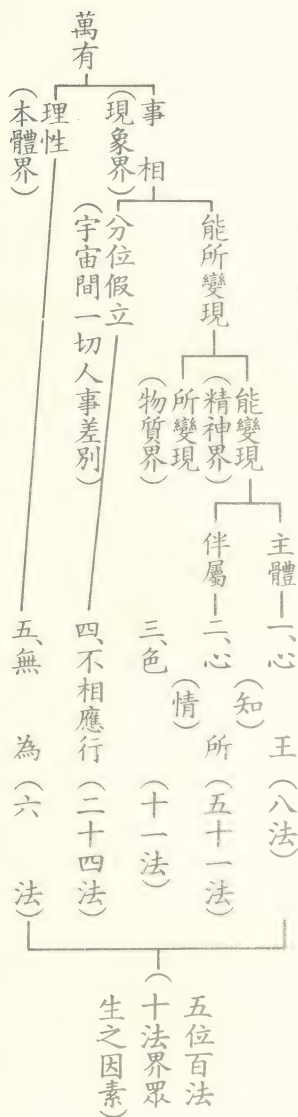 萬有
事相
(現象界)
理性
(本體界)
能所變現
分位假立
(宇宙間一切人事差別)
能變現
(精神界)
所變現
(物質界)
主體
伴屬
一、心王(八法)
(知)
二、心所(五十一法)
(情)
三、色(十一法)
四、不相應行(二十四法)
五、無為(六法)
五位百法
(十法界眾
生之因素)